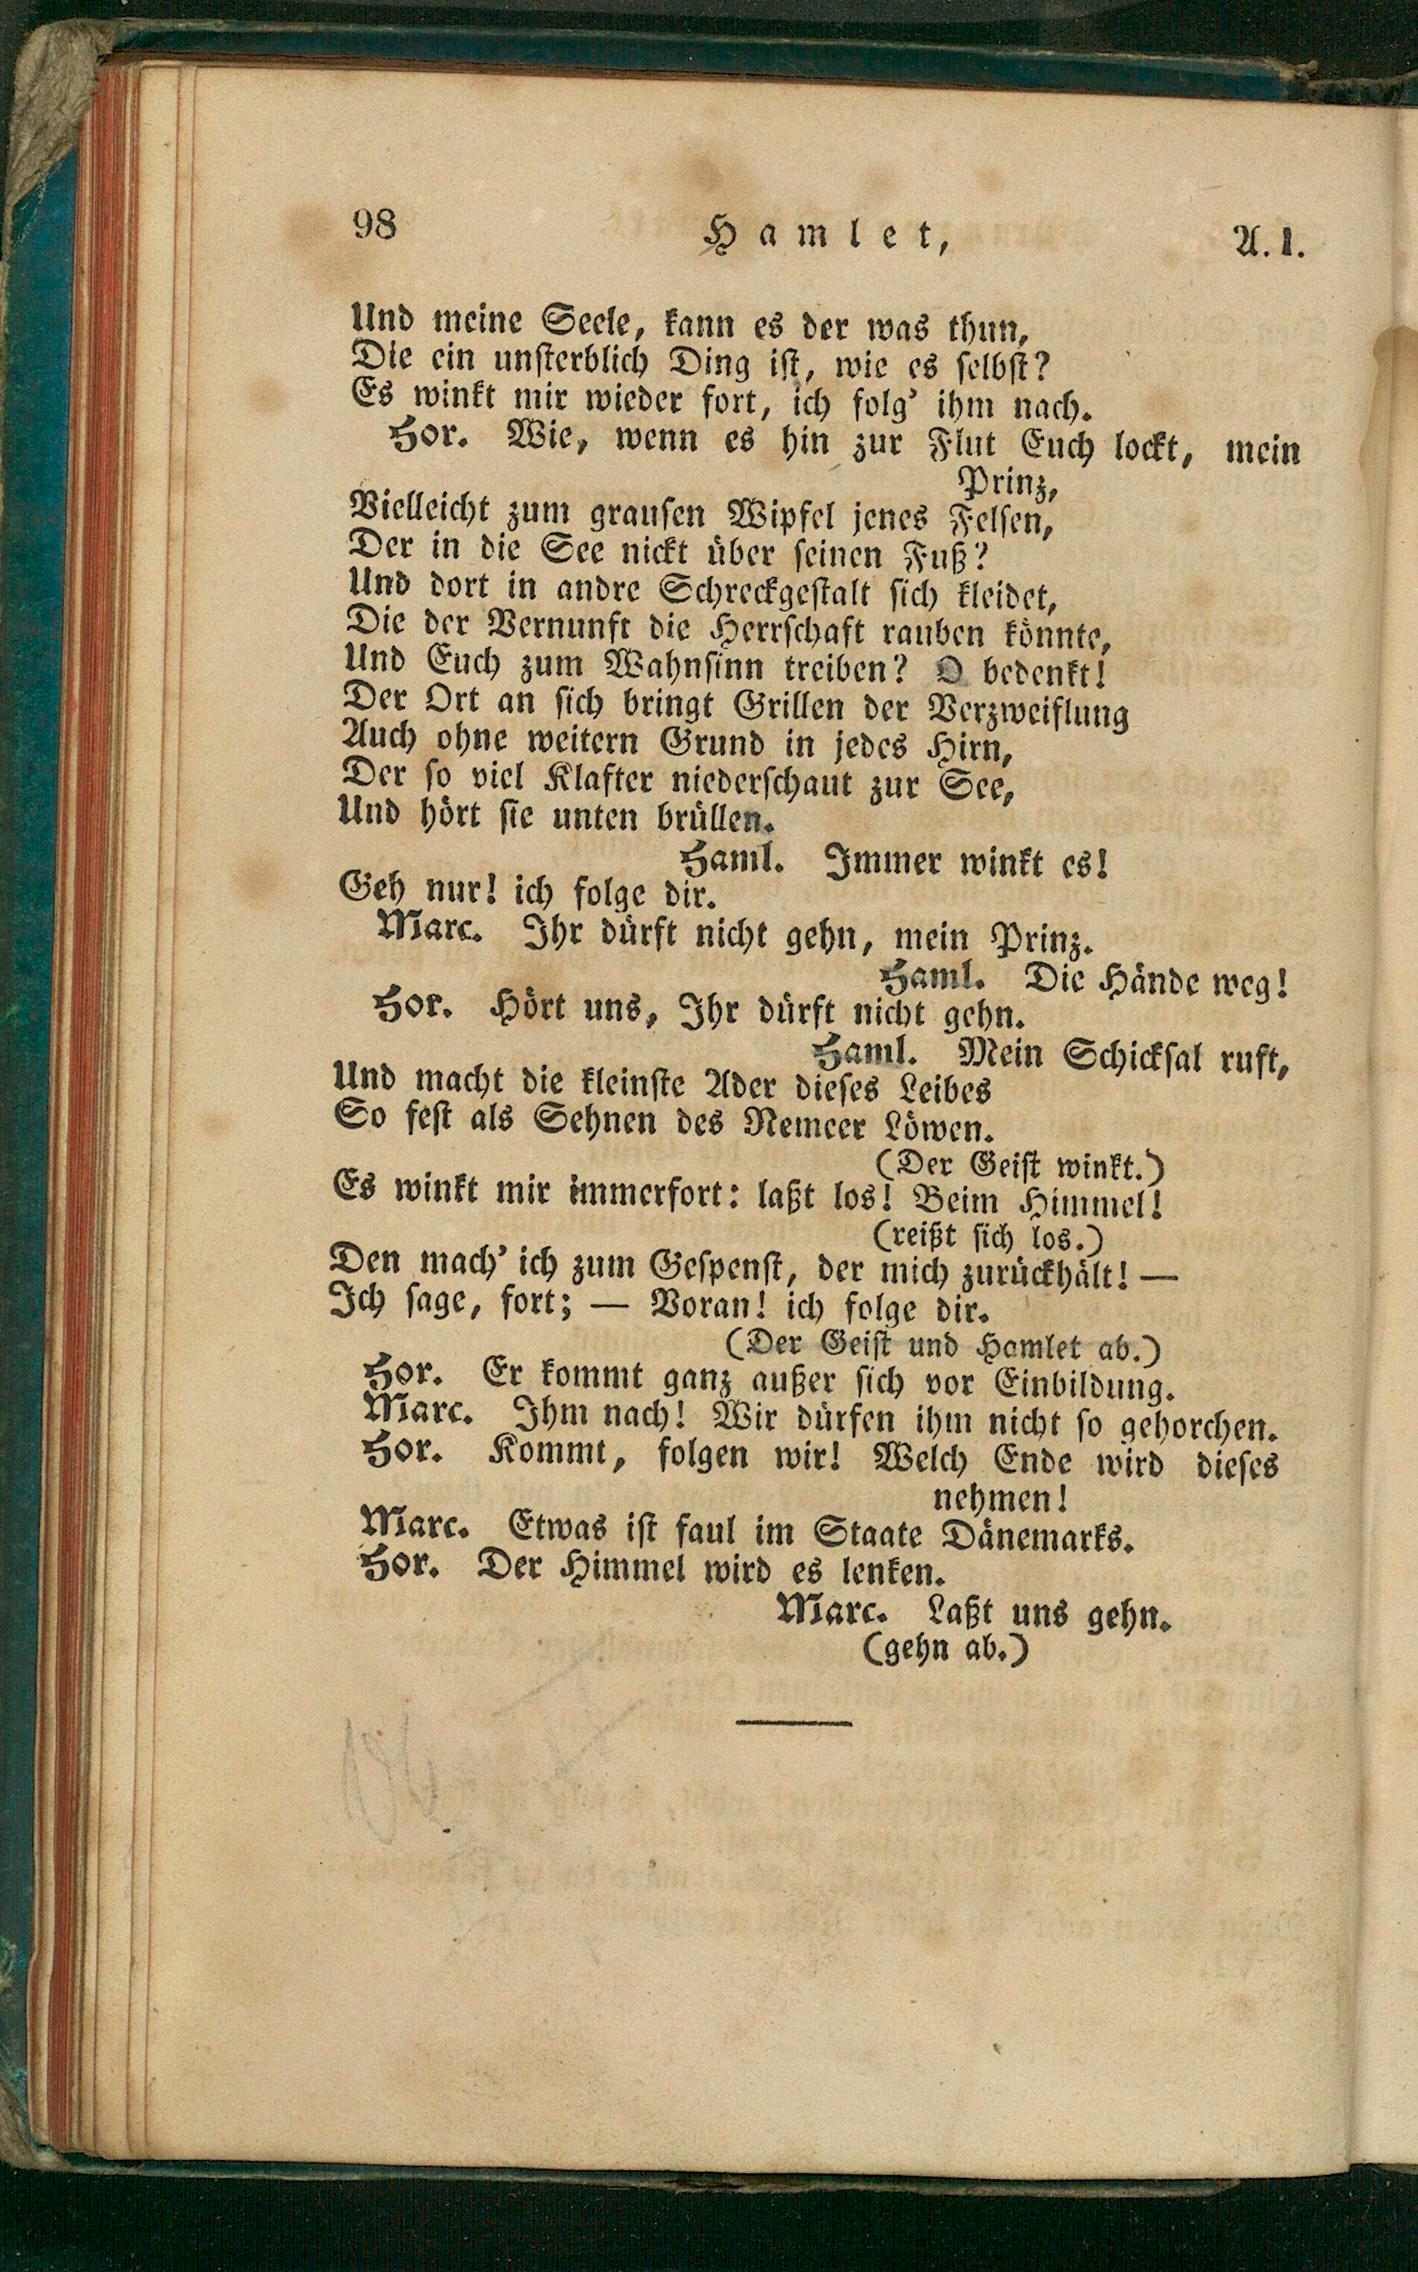 98 Hamlet, A. 1.
Und meine Seele, kann es der was thun,
Die ein unsterblich Ding ist, wie es selbst?
Es winkt mir wieder fort, ich folg' ihm nach.
Hor. Wie, wenn es hin zur Flut Euch lockt, mein
Prinz,
Vielleicht zum grausen Wipfel jenes Felsen,
Der in die See nickt über seinen Fuß?
Und dort in andre Schreckgestalt sich kleidet,
Die der Vernunft die Herrschaft rauben könnte,
Und Euch zum Wahnsinn treiben? O bedenkt!
Der Ort an sich bringt Grillen der Verzweiflung
Auch ohne weitern Grund in jedes Hirn,
Der so viel Klafter niederschaut zur See,
Und hört sie unten brüllen.
Haml. Immer winkt es!
Geh nur! ich folge dir.
Marc. Ihr dürft nicht gehn, mein Prinz.
Haml. Die Hände weg!
Hor. Hört uns, Ihr dürft nicht gehn.
Haml. Mein Schicksal ruft,
Und macht die kleinste Ader dieses Leibes
So fest als Sehnen des Nemeer Löwen.
(Der Geist winkt.)
Es winkt mir immerfort: laßt los! Beim Himmel!
(reißt sich los.)
Den mach' ich zum Gespenst, der mich zurückhält! —
Ich sage, fort; — Voran! ich folge dir.
(Der Geist und Hamlet ab.)
Hor. Er kommt ganz außer sich vor Einbildung.
Marc. Ihm nach! Wir dürfen ihm nicht so gehorchen.
Hor. Kommt, folgen wir! Welch Ende wird dieses
nehmen!
Marc. Etwas ist faul im Staate Dänemarks.
Hor. Der Himmel wird es lenken.
Marc. Laßt uns gehn.
(gehn ab.)